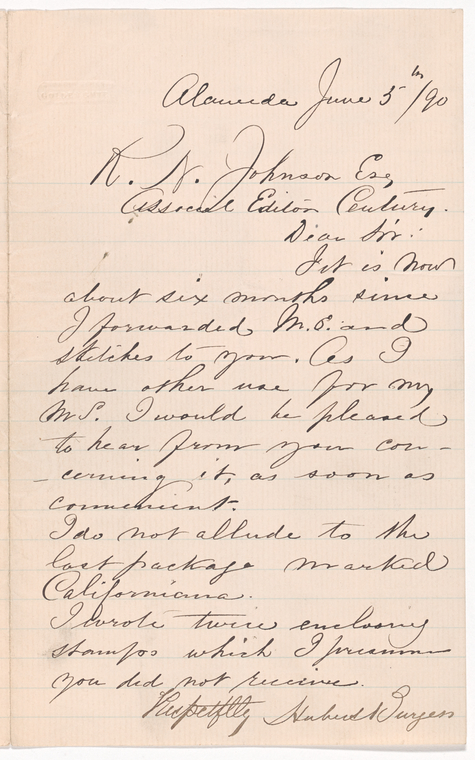 Alameda June 5th/90
R. N. Johnson Esq
Associat Editor Century.
Dear Sir:
It is now
about six months since
I forwarded M.S. and
sketches to you. As I
have other use for my
M.S. I would be pleased
to hear from you con-
-cerning it, as soon as
convenient.
I do not allude to the
last package marked
Californiana.
I wrote twice enclosing
stamps which I presume
you did not receive.
Respetflly Hubert Burgess